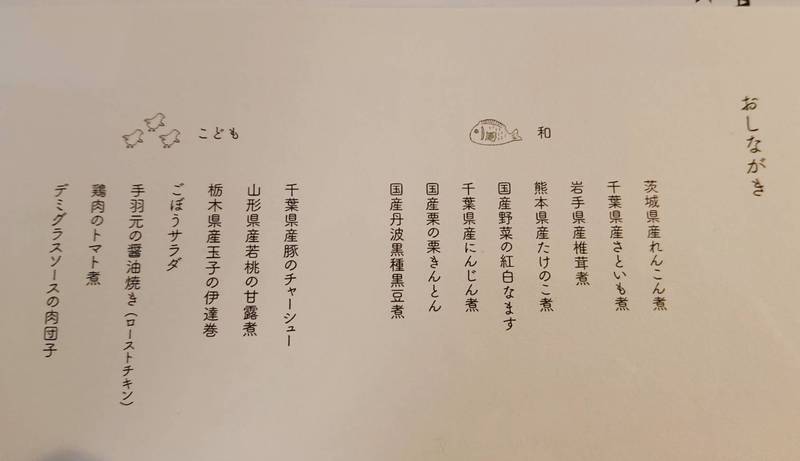 おしながき
和
茨城県産れんこん煮
千葉県産さといも煮
岩手県産椎茸煮
熊本県産たけのこ煮
国産野菜の紅白なます
千葉県産にんじん煮
国産栗の栗きんとん
国産丹波黒種黒豆煮
こども
千葉県産豚のチャーシュー
山形県産若桃の甘露煮
栃木県産玉子の伊達巻
ごぼうサラダ
手羽元の醤油焼き(ローストチキン)
鶏肉のトマト煮
デミグラスソースの肉団子